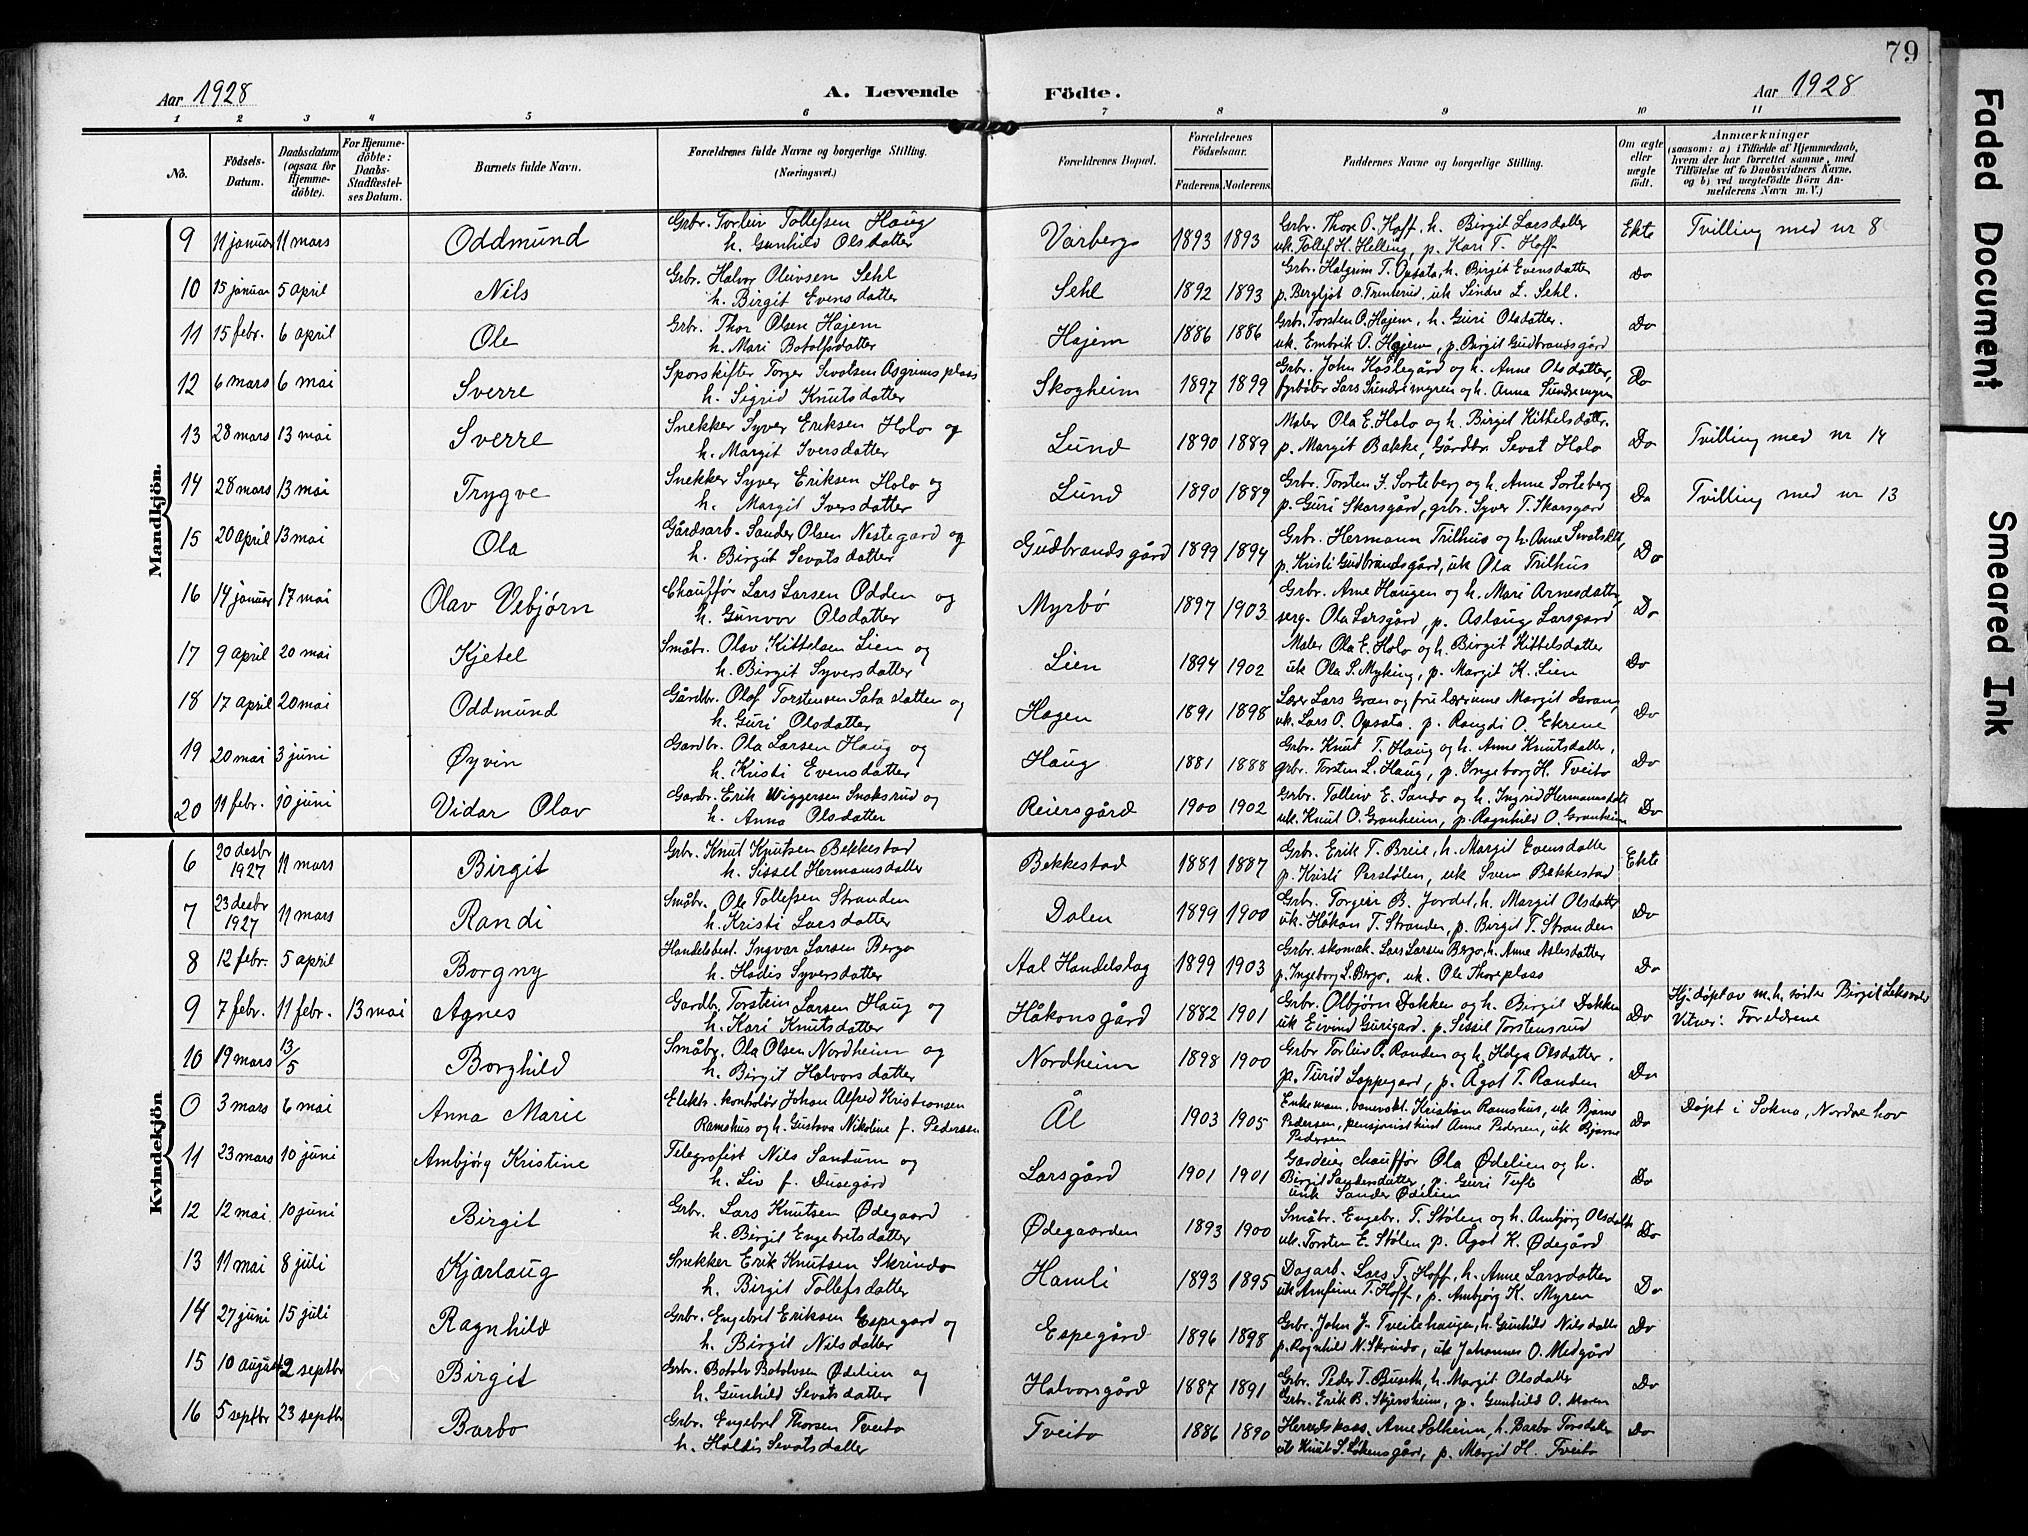 79
Aar 1928
A. Levende Födte.
Aar 1928
1 2 3 4 5 6 7 8 9 10 11
No.
Födsels-Datum.
Daabsdatum (ogsaa for Hjemme-döbte).
For Hjemme-döbte: Daabs-Stadfæstel-ses Datum.
Barnets fulde Navn.
Forældrenes fulde Navne og borgerlige Stilling. (Næringsvei.)
Forældrenes Bopæl.
Forældrenes Födselsaar.
Faderens. Moderens.
Faddernes Navne og borgerlige Stilling.
Om ægte eller uægte födt.
Anmærkninger (saasom: a) i Tilfælde af Hjemmedaab, hvem der har forrettet samme, med Tilföielse af to Daabsvidners Navne, og b) ved uægtefödte Börn An-melderens Navn m. V.)
Mandkjön.
9 11 januar 11 mars Oddmund Grbr. Torleiv Tollefsen Haug
h. Gunhild Olsdatter Varberg 1893 1893 Grbr. Thore O. Hoff, h. Birgit Larsdatter
uk. Tollef H. Helling, p. Kari T. Hoff Ekte Tvilling med nr 8
10 15 januar 5 april Nils Grbr. Halvor Oleivsen Sehl
h. Birgit Evensdatter Sehl 1892 1893 Grbr. Halgrim T. Opsata, h. Birgit Evensdatter
p. Bergljot O. Trinterud, uk Sindre L. Sehl. Do
11 15 febr. 6 april Ole Grbr. Thor Olsen Højem
h. Mari Botolfsdatter Højem 1886 1886 Grbr. Torsten O. Højem, h. Guri Olsdatter.
uk. Embrik O. Højem, p. Birgit Gudbrandsgård Do
12 6 mars 6 mai Sverre Sporskifter Torger Sevatsen Asgrimsplass
h. Sigrid Knutsdatter Skogheim 1897 1899 Grbr. John Haslegård og h. Anne Olsdatter,
fyrbøter Lars Sundremyren og h. Anna Sundremyren Do
13 28 mars 13 mai Sverre Snekker Syver Eriksen Holo og
h. Margit Iversdatter Lund 1890 1889 Maler Ola E. Holo og h. Birgit Kittelsdatter.
p. Margit Bakke, Gårdbr. Sevat Holo Do Tvilling med nr 14
14 28 mars 13 mai Trygve Snekker Syver Eriksen Holo og
h. Margit Iversdatter Lund 1890 1889 Grbr. Torsten S. Sorteberg og h. Anne Sorteberg
p. Guri Skarsgård, grbr. Syver T. Skarsgard Do Tvilling med nr 13
15 20 april 13 mai Ola Gårdsarb. Sander Olsen Nestegard og
h. Birgit Sevatsdatter Gudbrandsgård 1899 1894 Grbr. Hermann Trilhus og h. Anne Sevatsdtr,
p. Kristi Gudbrandsgård, uk Ola Trilhus Do
16 14 januar 17 mai Olav Vebjørn Chauffør Lars Larsen Odden og
h. Gunvor Olsdatter Myrbø 1897 1903 Grbr. Arne Haugen og h. Mari Arnesdatter,
serg. Ola Larsgård, p. Aslaug Larsgard Do
17 9 april 20 mai Kjetel Småbr. Olav Kittelsen Lien og
h. Birgit Syversdatter Lien 1894 1902 Maler Ola E. Holo og h. Birgit Kittelsdatter
uk Ola S. Myking, p. Margit K. Lien Do
18 17 april 20 mai Oddmund Gårdbr. Olof Torstensen og
h. Guri Olsdatter Hagen 1891 1898 Lærer Lars Gran og fru lærerinne Margit Gran,
uk. Lars O. Opsata, p. Rangdi O. Ekrene Do
19 20 mai 3 juni Øyvin Gardbr. Ola Larsen Haug og
h. Kristi Evensdatter Haug 1881 1888 Grbr. Knut T. Haug og h. Anne Knutsdatter,
grbr. Torsten L. Haug, p. Ingeborg H. Tveito Do
20 11 febr. 10 juni Vidar Olav Gardbr. Erik Wiggersen Snoksrud og
h. Anna Olsdatter Reiersgård 1900 1902 Grbr. Tolleiv E. Sando og h. Ingrid Hermansdatter
uk. Knut O. Granheim, p. Ragnhild O. Granheim Do
Kvindekjön
6 20 desbr 1927 11 mars Birgit Grbr. Knut Knutsen Bekkestad
h. Sissel Hermansdatter Bekkestad 1881 1887 Grbr. Erik T. Breie, h. Margit Evensdatter
p. Kristi Perstølen, uk Svein Bekkestad Ekte
7 23 desbr 1927 11 mars Randi Småbr. Ole Tollefsen Stranden
h. Kristi Larsdatter Dalen 1899 1900 Grbr. Torgeir B. Jordet, h. Margit Olsdatter
uk. Håkon T. Stranden, p. Birgit T. Stranden Do
8 12 febr. 5 april Borgny Handelsbest. Ingvar Larsen Bergo
h. Hadis Syversdatter Aal Handelslag 1899 1903 Grbr. skomak. Lars Larsen Bergo, h. Anne Aslesdatter
p. Ingeborg L. Bergo, uk. Ole Thoreplass Do
9 7 febr. 11 febr. 13 mai Agnes Gardbr. Torstein Larsen Haug og
h. Kari Knutsdatter Håkonsgård 1882 1901 Grbr. Olbjørn Dokken og h. Birgit Dokken
uk Eivind Gurigard, p. Sissil Torstensrud Do Hj. døpt av m. h. søster Birgit
Vitner: Foreldrene
10 19 mars 13/5 Borghild Småbr. Ola Olsen Nordheim og
h. Birgit Halvorsdatter Nordheim 1898 1900 Grbr Torleiv O. Randen og h. Helga Olsdatter.
p. Turid Loppegard, p. Ågot T. Randen Do
0 3 mars 6 mai Anna Marie Elektr. kontrolør Johan Alfred Kristiansen
Ramshus og h. Gustava Nikoline f. Pedersen Ål 1903 1905 Enkemann, banevokt. Kristian Ramshus, uk Bjarne
Pedersen, pensjonist Anne Pedersen, uk Bjarne
Pedersen Do Døpt i Sokna, Norderhov
11 23 mars 10 juni Ambjørg Kristine Telegrafist Nils Sandum og
h. Liv f. Dusegård Larsgård 1901 1901 Gardeier chauffør Ola Ødelien og h.
Birgit Sandersdatter, p. Guri Tufte
unk Sander Ødelien Do
12 12 mai 10 juni Birgit Grbr. Lars Knutsen Ødegaard
h. Birgit Engebretsdatter Ødegaarden 1893 1900 Småbr. Engebr. T. Stølen og h. Ambjørg Olsdatter
uk. Torsten E. Stølen p. Ågot K. Ødegård Do
13 11 mai 8 juli Kjærlaug Snekker Erik Knutsen Skrindo
h. Birgit Tollefsdatter Hamli 1893 1895 Dagarb. Lars T. Hoff, h. Anne Larsdatter
uk Arnfinne T. Hoff, p. Ambjørg K. Myren Do
14 27 juni 15 juli Ragnhild Grbr. Engebret Eriksen Espegard og
h. Birgit Nilsdatter Espegård 1896 1898 Grbr. John J. Tveitehaugen, h. Gunhild Nilsdatter
p. Ragnhild N. Skrindo, uk Johannes O. Medgård Do
15 10 august 2 septbr Birgit Grbr. Botolv Botolvsen Ødelien og
h. Gunhild Sevatsdatter Halvorsgård 1887 1891 Grbr. Peder T. Buseth, h. Margit Olsdatter
Grbr. Erik B. Skjersheim, p. Gunhild O. Moren Do
16 5 septbr 23 septbr Barbo Grbr. Engebret Thorsen Tveito
h. Haldis Sevatsdatter Tveito 1886 1890 Herredskass. Arne Solheim, h. Barbo Torsdatter
uk Knut S. Løkensgård, p. Margit H. Tveito Do
Faded Document
Smeared Ink